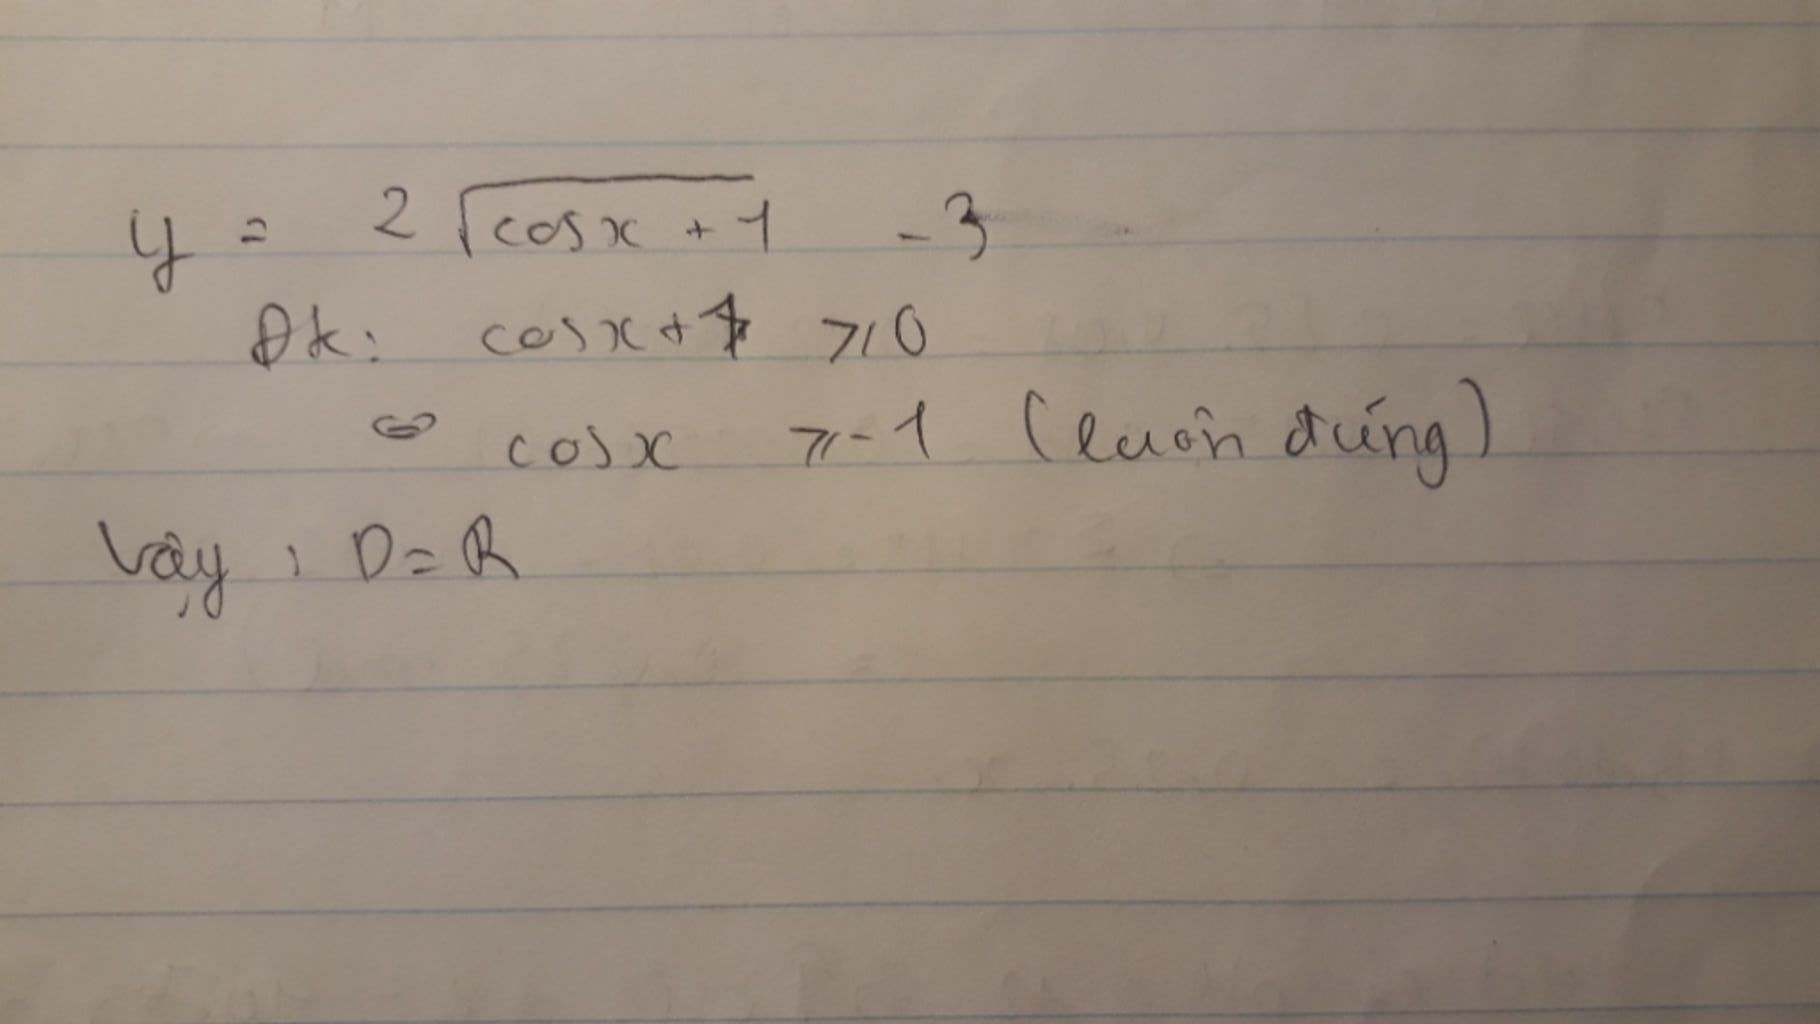 y = 2 √(cosx + 1) - 3
Đk: cosx + 1 ≥ 0
⇔ cosx ≥ -1 (luôn đúng)
Vậy : D = R